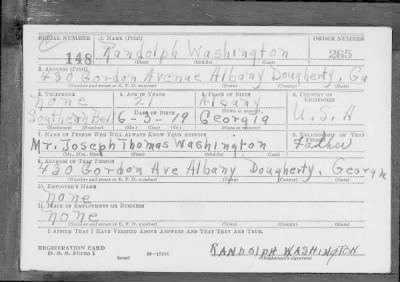 SERIAL NUMBER 1. NAME (Print) ORDER NUMBER
148 Randolph Washington 265
(First) (Middle) (Last)
2. ADDRESS (Print)
430 Gordon Avenue Albany Dougherty, Ga
(Number and street or R. F. D. number) (Town) (County) (State)
3. TELEPHONE 4. AGE IN YEARS 5. PLACE OF BIRTH 6. COUNTRY OF CITIZENSHIP
none 21 Albany
DATE OF BIRTH U.S.A
Southern Bell 6-0-09 Georgia
(Exchange) (Number) (Mo.) (Day) (Yr.) (State or country)
7. NAME OF PERSON WHO WILL ALWAYS KNOW YOUR ADDRESS 8. RELATIONSHIP OF THAT PERSON
Mr. Joseph Thomas Washington Father
(Mr., Mrs., Miss) (First) (Middle) (Last)
9. ADDRESS OF THAT PERSON
430 Gordon Ave Albany Dougherty, Georgia
(Number and street or R. F. D. number) (Town) (County) (State)
10. EMPLOYER'S NAME
none
11. PLACE OF EMPLOYMENT OR BUSINESS
none
(Number and street or R. F. D. number) (Town) (County) (State)
I AFFIRM THAT I HAVE VERIFIED ABOVE ANSWERS AND THAT THEY ARE TRUE.
REGISTRATION CARD
D. S. S. Form 1 (over) RANDOLPH WASHINGTON
(Registrant's signature)